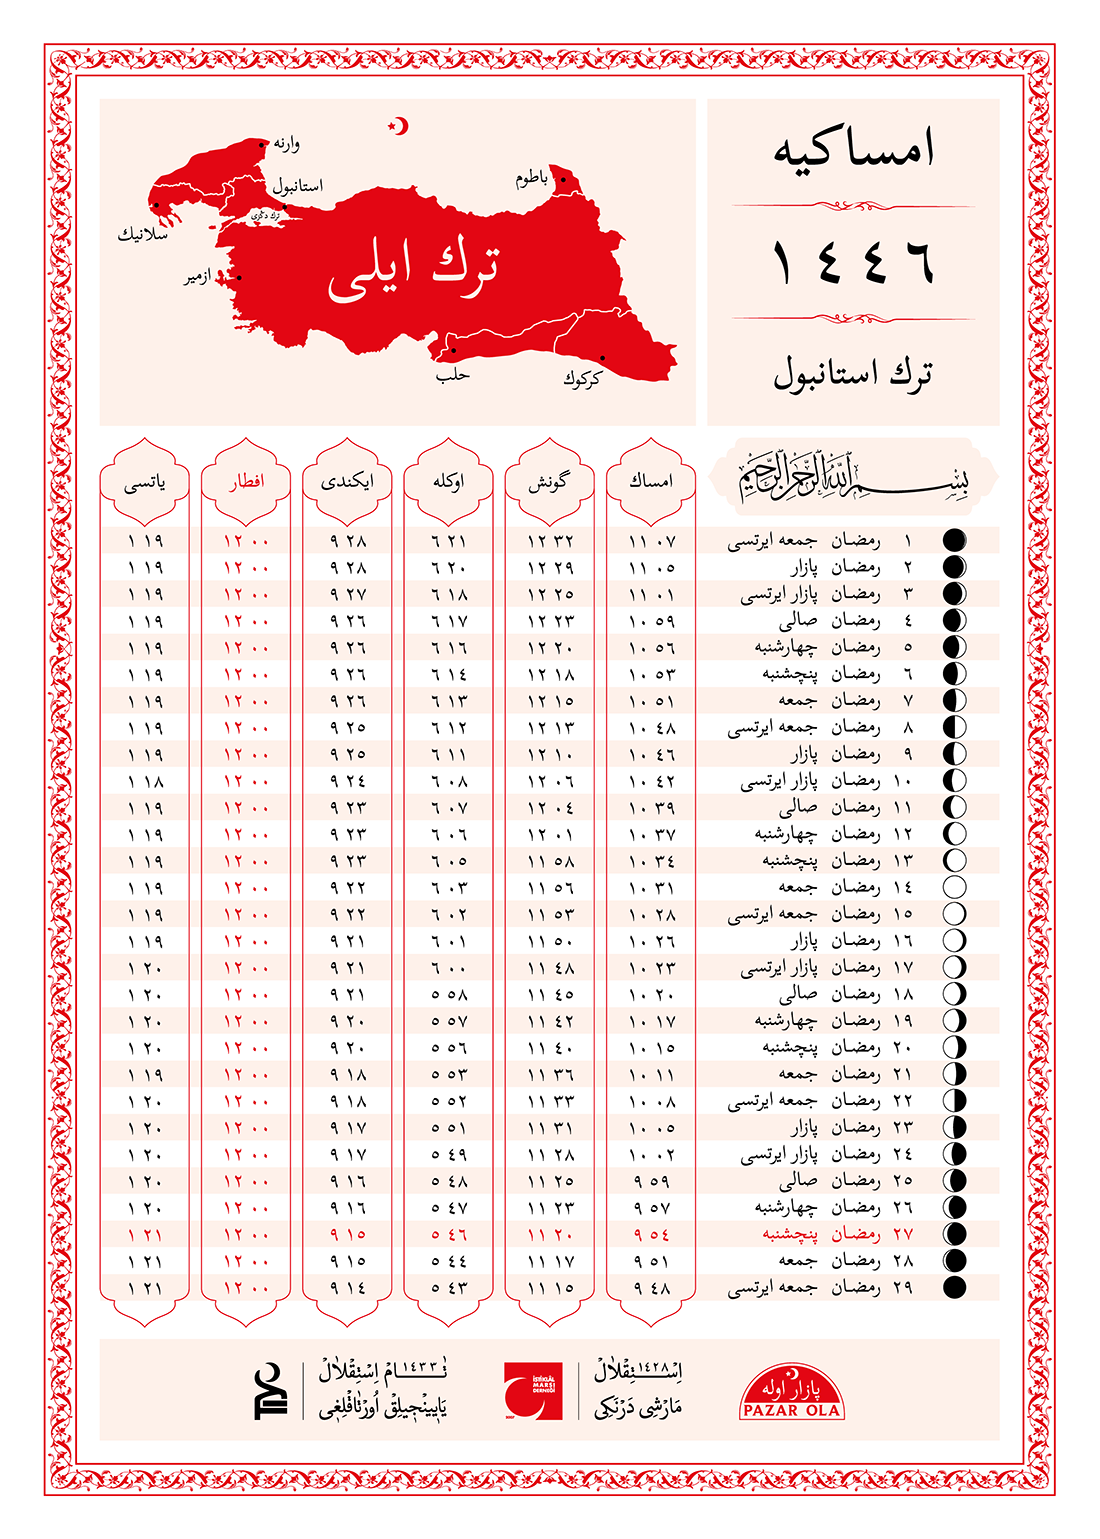 امساكیه
١٤٤٦
ترك استانبول
وارنه
استانبول
ترك دڭزی
سلانیك
ازمیر
باطوم
ترك ایلی
حلب
كركوك
بسم الله الرحمن الرحیم
امساك گونش اوكله ایكندی افطار یاتسی
١ رمضان جمعه ایرتسی ١١ ٠٧ ١٢ ٣٢ ٦ ٢١ ٩ ٢٨ ١٢ ٠٠ ١ ١٩
٢ رمضان پازار ١١ ٠٥ ١٢ ٢٩ ٦ ٢٠ ٩ ٢٨ ١٢ ٠٠ ١ ١٩
٣ رمضان پازار ایرتسی ١١ ٠١ ١٢ ٢٥ ٦ ١٨ ٩ ٢٧ ١٢ ٠٠ ١ ١٩
٤ رمضان صالی ١٠ ٥٩ ١٢ ٢٣ ٦ ١٧ ٩ ٢٦ ١٢ ٠٠ ١ ١٩
٥ رمضان چهارشنبه ١٠ ٥٦ ١٢ ٢٠ ٦ ١٦ ٩ ٢٦ ١٢ ٠٠ ١ ١٩
٦ رمضان پنچشنبه ١٠ ٥٣ ١٢ ١٨ ٦ ١٤ ٩ ٢٦ ١٢ ٠٠ ١ ١٩
٧ رمضان جمعه ١٠ ٥١ ١٢ ١٥ ٦ ١٣ ٩ ٢٦ ١٢ ٠٠ ١ ١٩
٨ رمضان جمعه ایرتسی ١٠ ٤٨ ١٢ ١٣ ٦ ١٢ ٩ ٢٥ ١٢ ٠٠ ١ ١٩
٩ رمضان پازار ١٠ ٤٦ ١٢ ١٠ ٦ ١١ ٩ ٢٥ ١٢ ٠٠ ١ ١٩
١٠ رمضان پازار ایرتسی ١٠ ٤٢ ١٢ ٠٦ ٦ ٠٨ ٩ ٢٤ ١٢ ٠٠ ١ ١٨
١١ رمضان صالی ١٠ ٣٩ ١٢ ٠٤ ٦ ٠٧ ٩ ٢٣ ١٢ ٠٠ ١ ١٩
١٢ رمضان چهارشنبه ١٠ ٣٧ ١٢ ٠١ ٦ ٠٦ ٩ ٢٣ ١٢ ٠٠ ١ ١٩
١٣ رمضان پنچشنبه ١٠ ٣٤ ١١ ٥٨ ٦ ٠٥ ٩ ٢٣ ١٢ ٠٠ ١ ١٩
١٤ رمضان جمعه ١٠ ٣١ ١١ ٥٦ ٦ ٠٣ ٩ ٢٢ ١٢ ٠٠ ١ ١٩
١٥ رمضان جمعه ایرتسی ١٠ ٢٨ ١١ ٥٣ ٦ ٠٢ ٩ ٢٢ ١٢ ٠٠ ١ ١٩
١٦ رمضان پازار ١٠ ٢٦ ١١ ٥٠ ٦ ٠١ ٩ ٢١ ١٢ ٠٠ ١ ١٩
١٧ رمضان پازار ایرتسی ١٠ ٢٣ ١١ ٤٨ ٦ ٠٠ ٩ ٢١ ١٢ ٠٠ ١ ٢٠
١٨ رمضان صالی ١٠ ٢٠ ١١ ٤٥ ٥ ٥٨ ٩ ٢١ ١٢ ٠٠ ١ ٢٠
١٩ رمضان چهارشنبه ١٠ ١٧ ١١ ٤٢ ٥ ٥٧ ٩ ٢٠ ١٢ ٠٠ ١ ٢٠
٢٠ رمضان پنچشنبه ١٠ ١٥ ١١ ٤٠ ٥ ٥٦ ٩ ٢٠ ١٢ ٠٠ ١ ٢٠
٢١ رمضان جمعه ١٠ ١١ ١١ ٣٦ ٥ ٥٣ ٩ ١٨ ١٢ ٠٠ ١ ١٩
٢٢ رمضان جمعه ایرتسی ١٠ ٠٨ ١١ ٣٣ ٥ ٥٢ ٩ ١٨ ١٢ ٠٠ ١ ٢٠
٢٣ رمضان پازار ١٠ ٠٥ ١١ ٣١ ٥ ٥١ ٩ ١٧ ١٢ ٠٠ ١ ٢٠
٢٤ رمضان پازار ایرتسی ١٠ ٠٢ ١١ ٢٨ ٥ ٤٩ ٩ ١٧ ١٢ ٠٠ ١ ٢٠
٢٥ رمضان صالی ٩ ٥٩ ١١ ٢٥ ٥ ٤٨ ٩ ١٦ ١٢ ٠٠ ١ ٢٠
٢٦ رمضان چهارشنبه ٩ ٥٧ ١١ ٢٣ ٥ ٤٧ ٩ ١٦ ١٢ ٠٠ ١ ٢٠
٢٧ رمضان پنچشنبه ٩ ٥٤ ١١ ٢٠ ٥ ٤٦ ٩ ١٥ ١٢ ٠٠ ١ ٢١
٢٨ رمضان جمعه ٩ ٥١ ١١ ١٧ ٥ ٤٤ ٩ ١٥ ١٢ ٠٠ ١ ٢١
٢٩ رمضان جمعه ایرتسی ٩ ٤٨ ١١ ١٥ ٥ ٤٣ ٩ ١٤ ١٢ ٠٠ ١ ٢١
پازار اوله
PAZAR OLA
اِسْتِقْلَالْ ١٤٢٨
مَارْشِی دَرْنَكِی
İSTİKLÂL
MARŞI
DERNEĞİ
2007
تَامْ اِسْتِقْلَالْ ١٤٣٣
یَایِینْجِیلِقْ اُورْتَاقْلِغِی